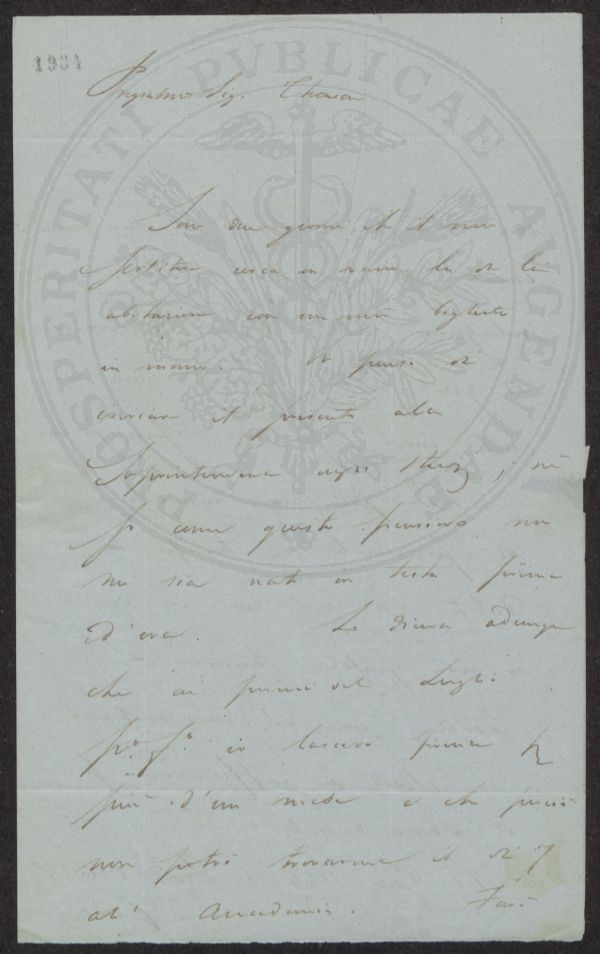 1934
PROSPERITATI PVBLICAE AVGENDAE
Pregiatmo Sig.
Son due giorni che il mio
cerca in vano la di lei
abitazione con un mio biglietto
in mano. Or penso di
inviare il presente alla
Sopraintendenza degli, nè
so come questo pensiero non
mi sia nato in testa prima
d'ora. Le diceva adunque
che ai primi del Luglio
io lascerò per
più d'un mese e che perciò
non potrò trovarmi il di 7
all' Accademia. Farò